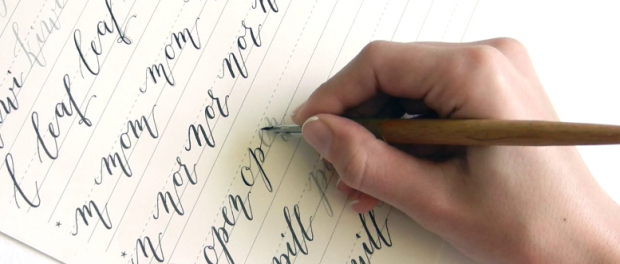 kiwi
l leaf leaf
* m mom mom
* n nor nor nor
open open
pill
will